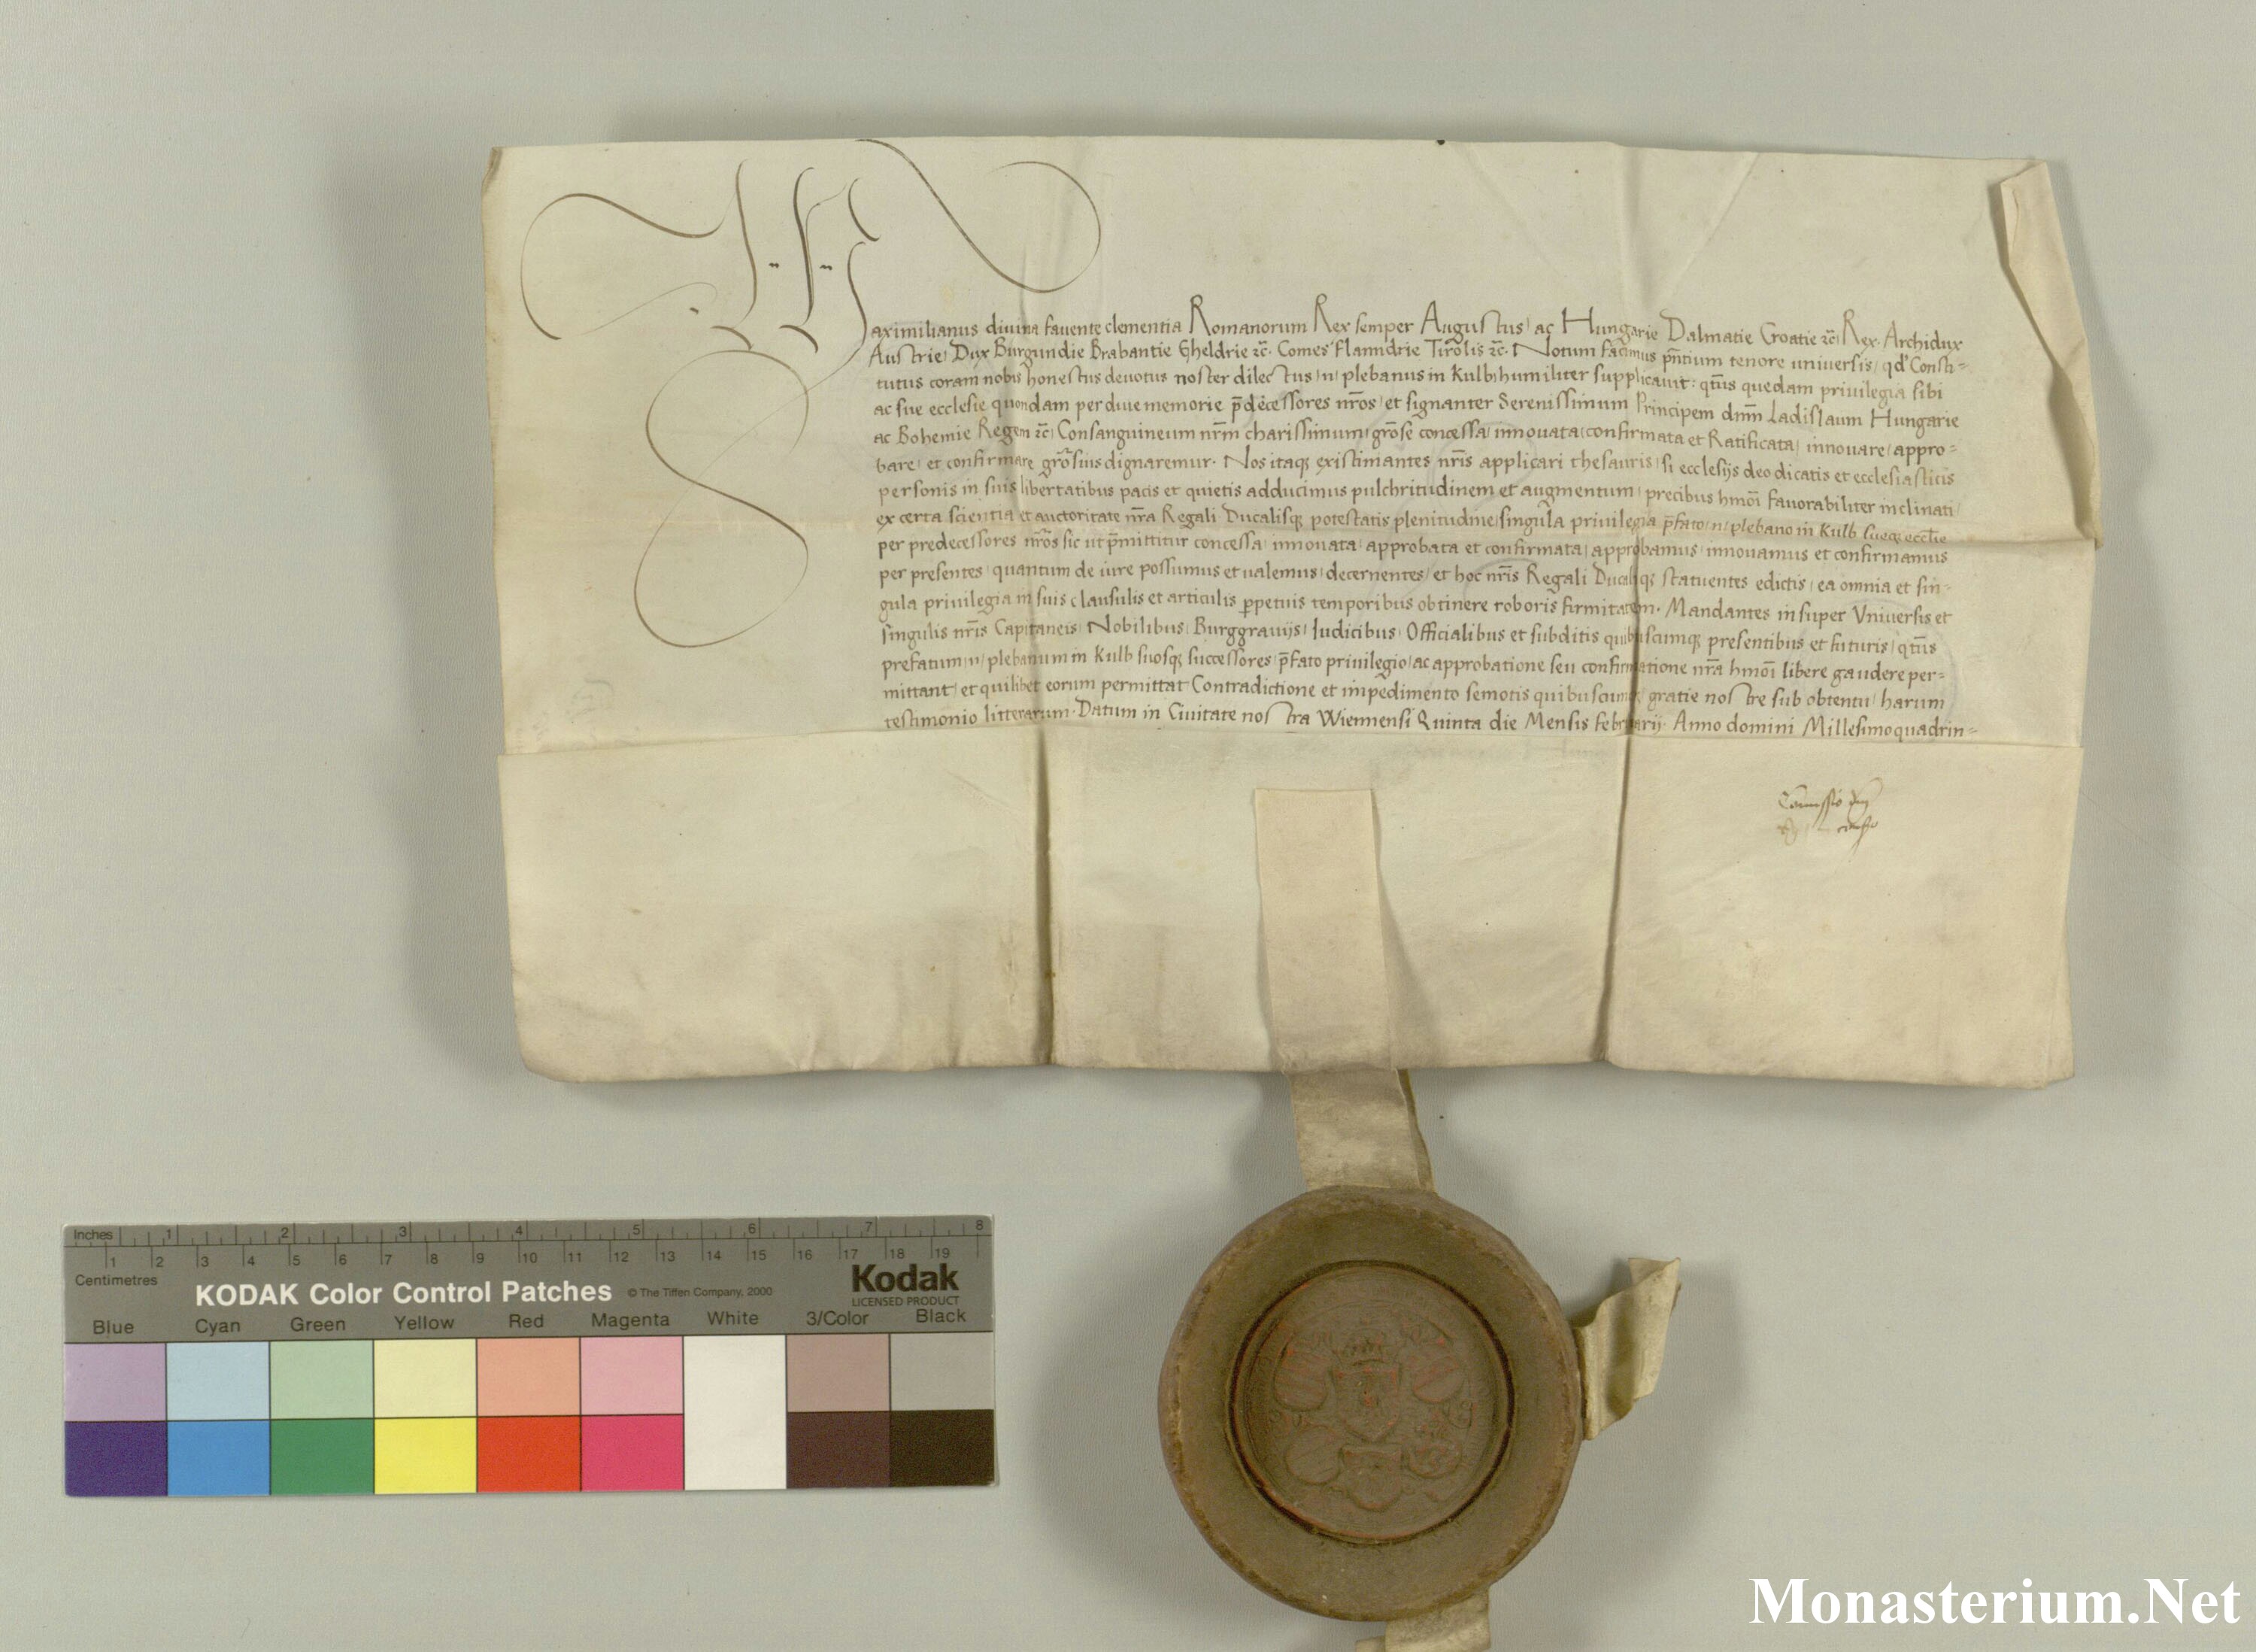 Maximilianus diuina fauente clementia Romanorum Rex semper Augustus, ac Hungarie Dalmatie Croatie ꝛc̄, Rex. Archidux
Austrie, Dux Burgundie Brabantie Gheldrie ꝛc̄. Comes Flanndrie Tirolis ꝛc̄. Notum facimus p̄ntium tenore uniuersis, qd' Consti-
tutus coram nobis honestus deuotus noster dilectus, n, plebanus in Kulb, humiliter supplicauit: qt̄us quedam priuilegia sibi
ac sue ecclesie quondam per diue memorie p̄decessores nr̄os, et signanter Serenissimum Principem dnm̄ Ladislaum Hungarie
ac Bohemie Regem ꝛc̄, Consanguineum nr̄m charissimum, gr̄ose concessa, innouata, confirmata et Ratificata, innouare, appro-
bare, et confirmare gr̄osius dignaremur. Nos itaqꝫ existimantes nr̄is applicari thesauris, si ecclesijs deo dicatis et ecclesiasticis
personis in suis libertatibus pacis et quietis adducimus pulchritudinem et augmentum, precibus hmōi fauorabiliter inclinati,
ex certa scientia et auctoritate nr̄a Regali Ducalisqꝫ potestatis plenitudine, singula priuilegia p̄fato, n, plebano in Kulb sueqꝫ eccl̄ie
per predecessores nr̄os sic ut p̄mittitur concessa, innouata, approbata et confirmata, approbamus, innouamus et confirmamus
per presentes, quantum de iure possumus et ualemus, decernentes, et hoc nr̄is Regali Ducaliqꝫ statuentes edictis, ea omnia et sin-
gula priuilegia in suis clausulis et articulis ꝑpetuis temporibus obtinere roboris firmitatem. Mandantes insuper Vniuersis et
singulis nr̄is Capitaneis, Nobilibus, Burggrauijs, Iudicibus, Officialibus et subditis quibuscumqꝫ presentibus et futuris, qt̄us
prefatum, n, plebanum in Kulb suosqꝫ successores, p̄fato priuilegio, ac approbatione seu confirmatione nr̄a hmōi libere gaudere per-
mittant, et quilibet eorum permittat Contradictione et impedimento semotis quibuscumqꝫ, gratie nostre sub obtentu, harum
testimonio litterarum. Datum in Ciuitate nostra Wiennensi Quinta die Mensis Februarij. Anno domini Millesimoquadrin-
Comissio
Inches 1 2 3 4 5 6 7 8
1 2 3 4 5 6 7 8 9 10 11 12 13 14 15 16 17 18 19
Centimetres
KODAK Color Control Patches © The Tiffen Company, 2000 Kodak
LICENSED PRODUCT
Blue Cyan Green Yellow Red Magenta White 3/Color Black
Monasterium.Net